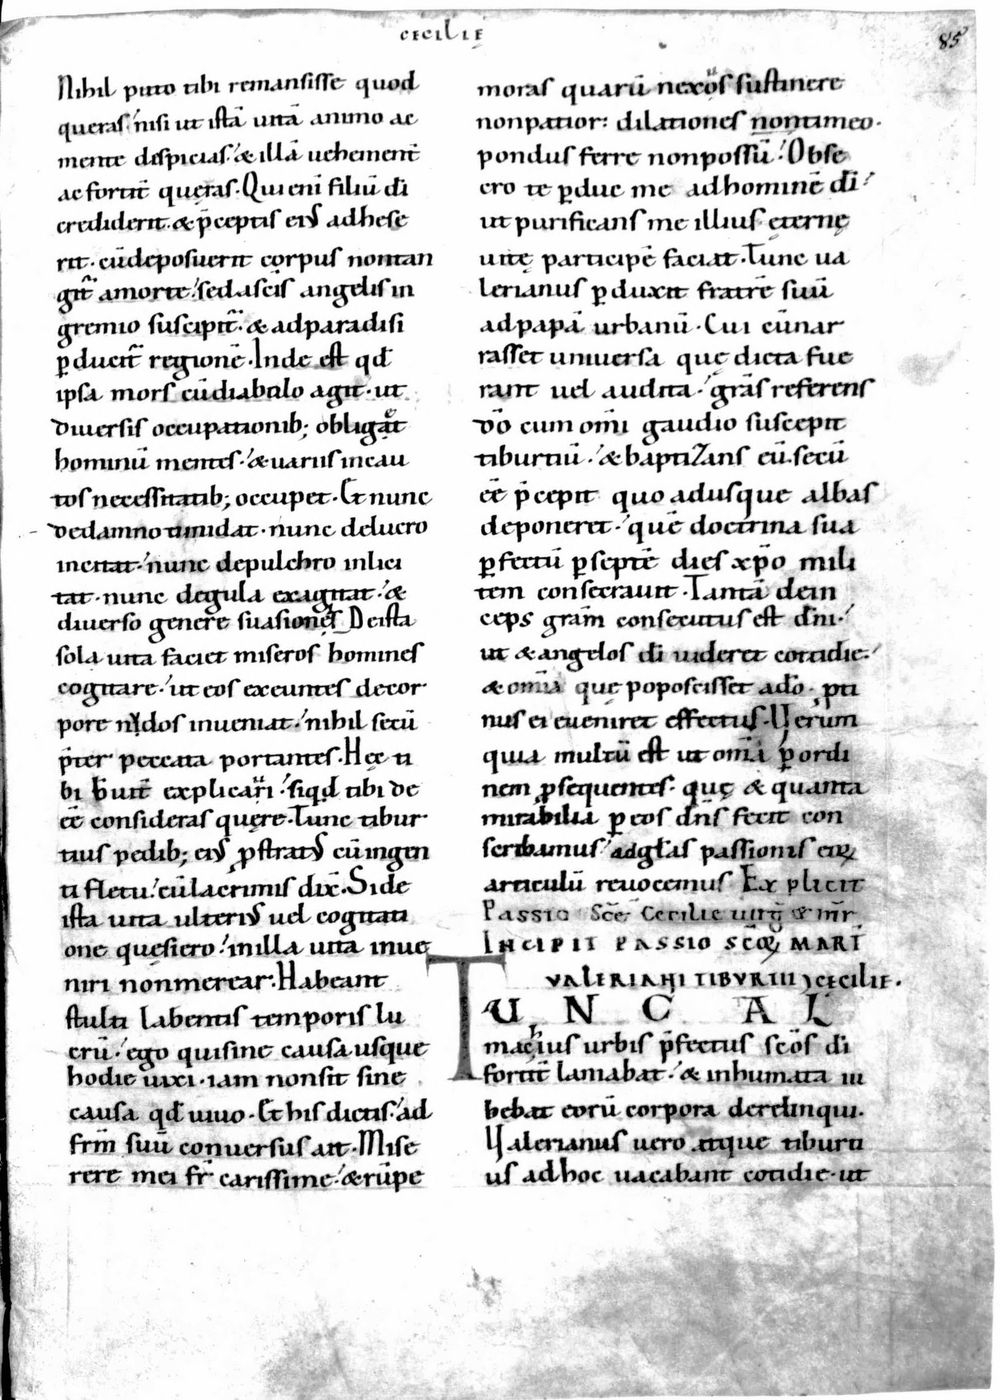 CECILIE
85
Nihil puto tibi remansisse quod
queras. nisi ut istā uitā animo ac
mente dispicias. & illā uehement̄
ac fortit̄ queras. Qui eni filiū dī
crediderit. & p̄ceptis eiꝰ adhese
rit. cū deposuerit corpus nontan
git̄ amorte. sedascīs angelis in
gremio suscipit̄. & adparadisi
ꝑducit̄ regionē. Inde est qđ
ipsa mors cūdiabolo agit. ut
diuersis occupationib; obligat
hominū mentes. & uariis incau
tos necessitatib; occupet. Et nunc
dedamno timidat. nunc delucro
incitat. nunc depulchro inlici
tat. nunc degula exagitat. &
diuerso genere suasiones Deista
sola uita faciet miseros homines
cogitare. ut eos exeuntes decor
pore nudos inueniat. nihil secū
p̄ter peccata portantes. Hęc ti
bi b̄uit̄ explicari. siqđ tibi de
ēē consideras quęre. Tunc tibur
tius pedib; eiꝰ ꝓstratꝰ cū ingen
ti fletu. cūlacrimis dix̄. Side
ista uita ulteriꝰ uel cogitati
one quesiero. inilla uita inue
niri nonmerear. Habeant
stulti labentis temporis lu
crū. ego quisine causa usque
hodie uixi. iam nonsit sine
causa qđ uiuo. Et his dictis. ad
frm̄ suū conuersus ait. Mise
rere mei fr̄ carissime. & rūpe
moras quarū nexos sustinere
nonpatior: dilationes nontimeo.
pondus ferre nonpossū. Obse
cro te ꝑduc me adhominē dī.
ut purificans me illius ęternę
uitę participē faciat. Tunc ua
lerianus ꝑduxit fratrē suū
adpapā urbanū. Cui cūnar
rasset uniuersa quę dicta fue
rant uel audita. grās referens
dō cum om̄i gaudio suscepit
tiburtiū. & baptizans eū. secū
ēē p̄cepit quo adusque albas
deponeret. quē doctrina sua
ꝑfectū ꝑseptē dies xp̄o mili
tem consecrauit. Tantā dein
ceps grām consecutus est dn̄i.
ut & angelos dī uideret cottidie.
& om̄ia quę poposcisset adō. pti
nus ei eueniret effectus. Verum
quia multū est ut om̄ia ꝑ ordi
nem ꝓsequentes. quę & quanta
mirabilia ꝑ eos dn̄s fecit con
scribamus. adglās passionis eoꝝ
articulū reuocemus Explicit
Passio Scē Cecilie uirḡ & mr̄
INCIPIT PASSIO SCOꝝ MART̄
VALERIANI TIBVRTII 7 CECILIE.
TUNC AL
machius urbis p̄fectus scōs dī
fortit̄ laniabat. & inhumata iu
bebat eorū corpora derelinqui.
Valerianus uero atque tiburti
us adhoc uacabant cotidie. ut